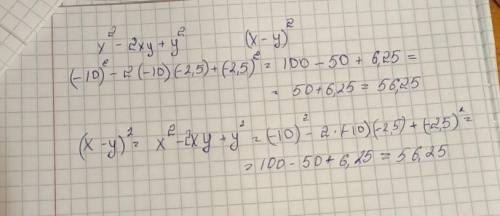 x² - 2xy + y² (x - y)²
(-10)² - 2(-10)(-2,5) + (-2,5)² = 100 - 50 + 6,25 =
= 50 + 6,25 = 56,25
(x - y)² = x² - 2xy + y² = (-10)² - 2·(-10)(-2,5) + (-2,5)² =
= 100 - 50 + 6,25 = 56,25